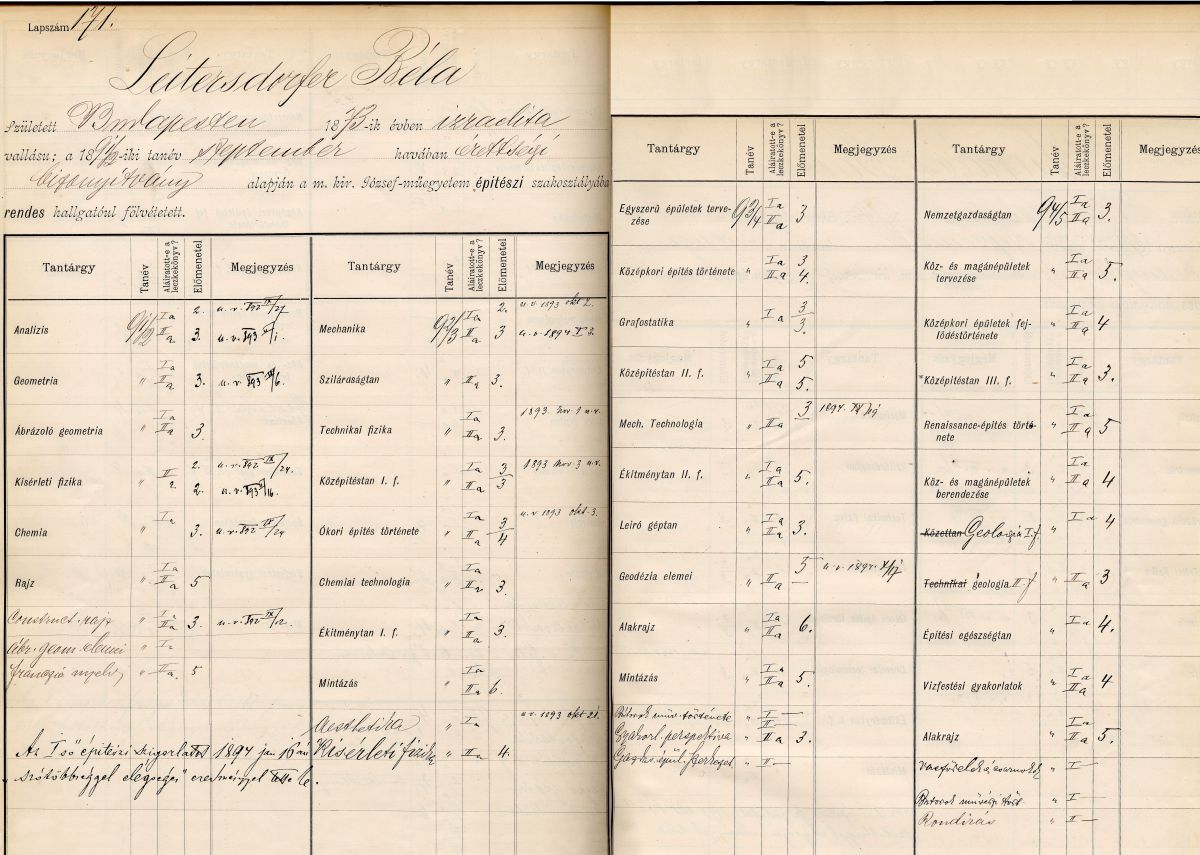 Lapszám 171.
Leitersdorfer Béla
Született Budapesten 1873-ik évben izraelita
vallásu; a 1891/92-iki tanév september havában érettségi
bizonyítvány alapján a m. kir. József-műegyetem építészi szakosztályába
rendes hallgatóul fölvétetett.
Tantárgy Tanév Aláíratott-e a leczkekönyv? Előmenetel Megjegyzés
Analizis 91/2 Ia 2.
IIa 3.
Geometria " Ia
IIa 3.
Ábrázoló geometria " Ia
IIa 3.
Kisérleti fizika " 2.
2.
Chemia " Ia 3.
Rajz " Ia
IIa 5
Construct. rajz " Ia
IIa 3.
Ábr. geom. elemi " I
franczia nyelv " IIa. 5
Az I ső építészi szigorlatot 1894 jan 16 án
szótöbbséggel elégséges eredménynyel tette le.
Tantárgy Tanév Aláíratott-e a leczkekönyv? Előmenetel Megjegyzés
Mechanika 92/3 Ia 2. u. v. 1893 okt 2.
IIa 3
Szilárdságtan " IIa 3.
Technikai fizika " Ia 1893. nov 9 u. v.
IIa 3.
Középítéstan I. f. " Ia 3 1893 nov 3 u. v.
IIa 3
Ókori építés története " Ia 3 u. v 1893 okt. 3.
IIa 4
Chemiai technologia " Ia
IIa 3.
Ékítménytan I. f. " Ia
IIa 3.
Mintázás " Ia
IIa 6.
Aesthetika " Ia u. v. 1893 okt 21.
Kiserleti fizika " IIa 4.
Tantárgy Tanév Aláíratott-e a leczkekönyv? Előmenetel Megjegyzés
Egyszerű épületek terve-
zése 93/4 Ia
IIa 3
Középkori építés története " Ia 3
IIa 4.
Grafostatika " Ia 3
3.
Középítéstan II. f. " Ia 5
IIa 5.
Mech. Technologia " IIa 3 1894.
Ékítménytan II. f. " Ia
IIa 5.
Leiró géptan " Ia
IIa 3.
Geodézia elemei " IIa 5 u. v. 1894.
Alakrajz " Ia
IIa 6.
Mintázás " Ia
IIa 5.
Bútorok műv. története " I —
Gyakorl. perspektiva " IIa 3.
Gazdas. épül. szerkezet " II —
Tantárgy Tanév Aláíratott-e a leczkekönyv? Előmenetel Megjegyzés
Nemzetgazdaságtan 94/5 Ia
IIa 3.
Köz- és magánépületek
tervezése " Ia
IIa 5.
Középkori épületek fej-
lődéstörténete " Ia
IIa 4
Középítéstan III. f. " Ia
IIa 3.
Renaissance-építés törté-
nete " Ia
IIa 5
Köz- és magánépületek
berendezése " Ia
IIa 4
Kőzettan Geologia I. f " Ia 4
Technikai geologia II. f " IIa 3
Építési egészségtan " Ia 4.
Vizfestési gyakorlatok " Ia
IIa 4
Alakrajz " Ia
IIa 5.
Vasfödelek és csarnokok " I —
Bútorok művészi tört. " I —
Rondirás " II —